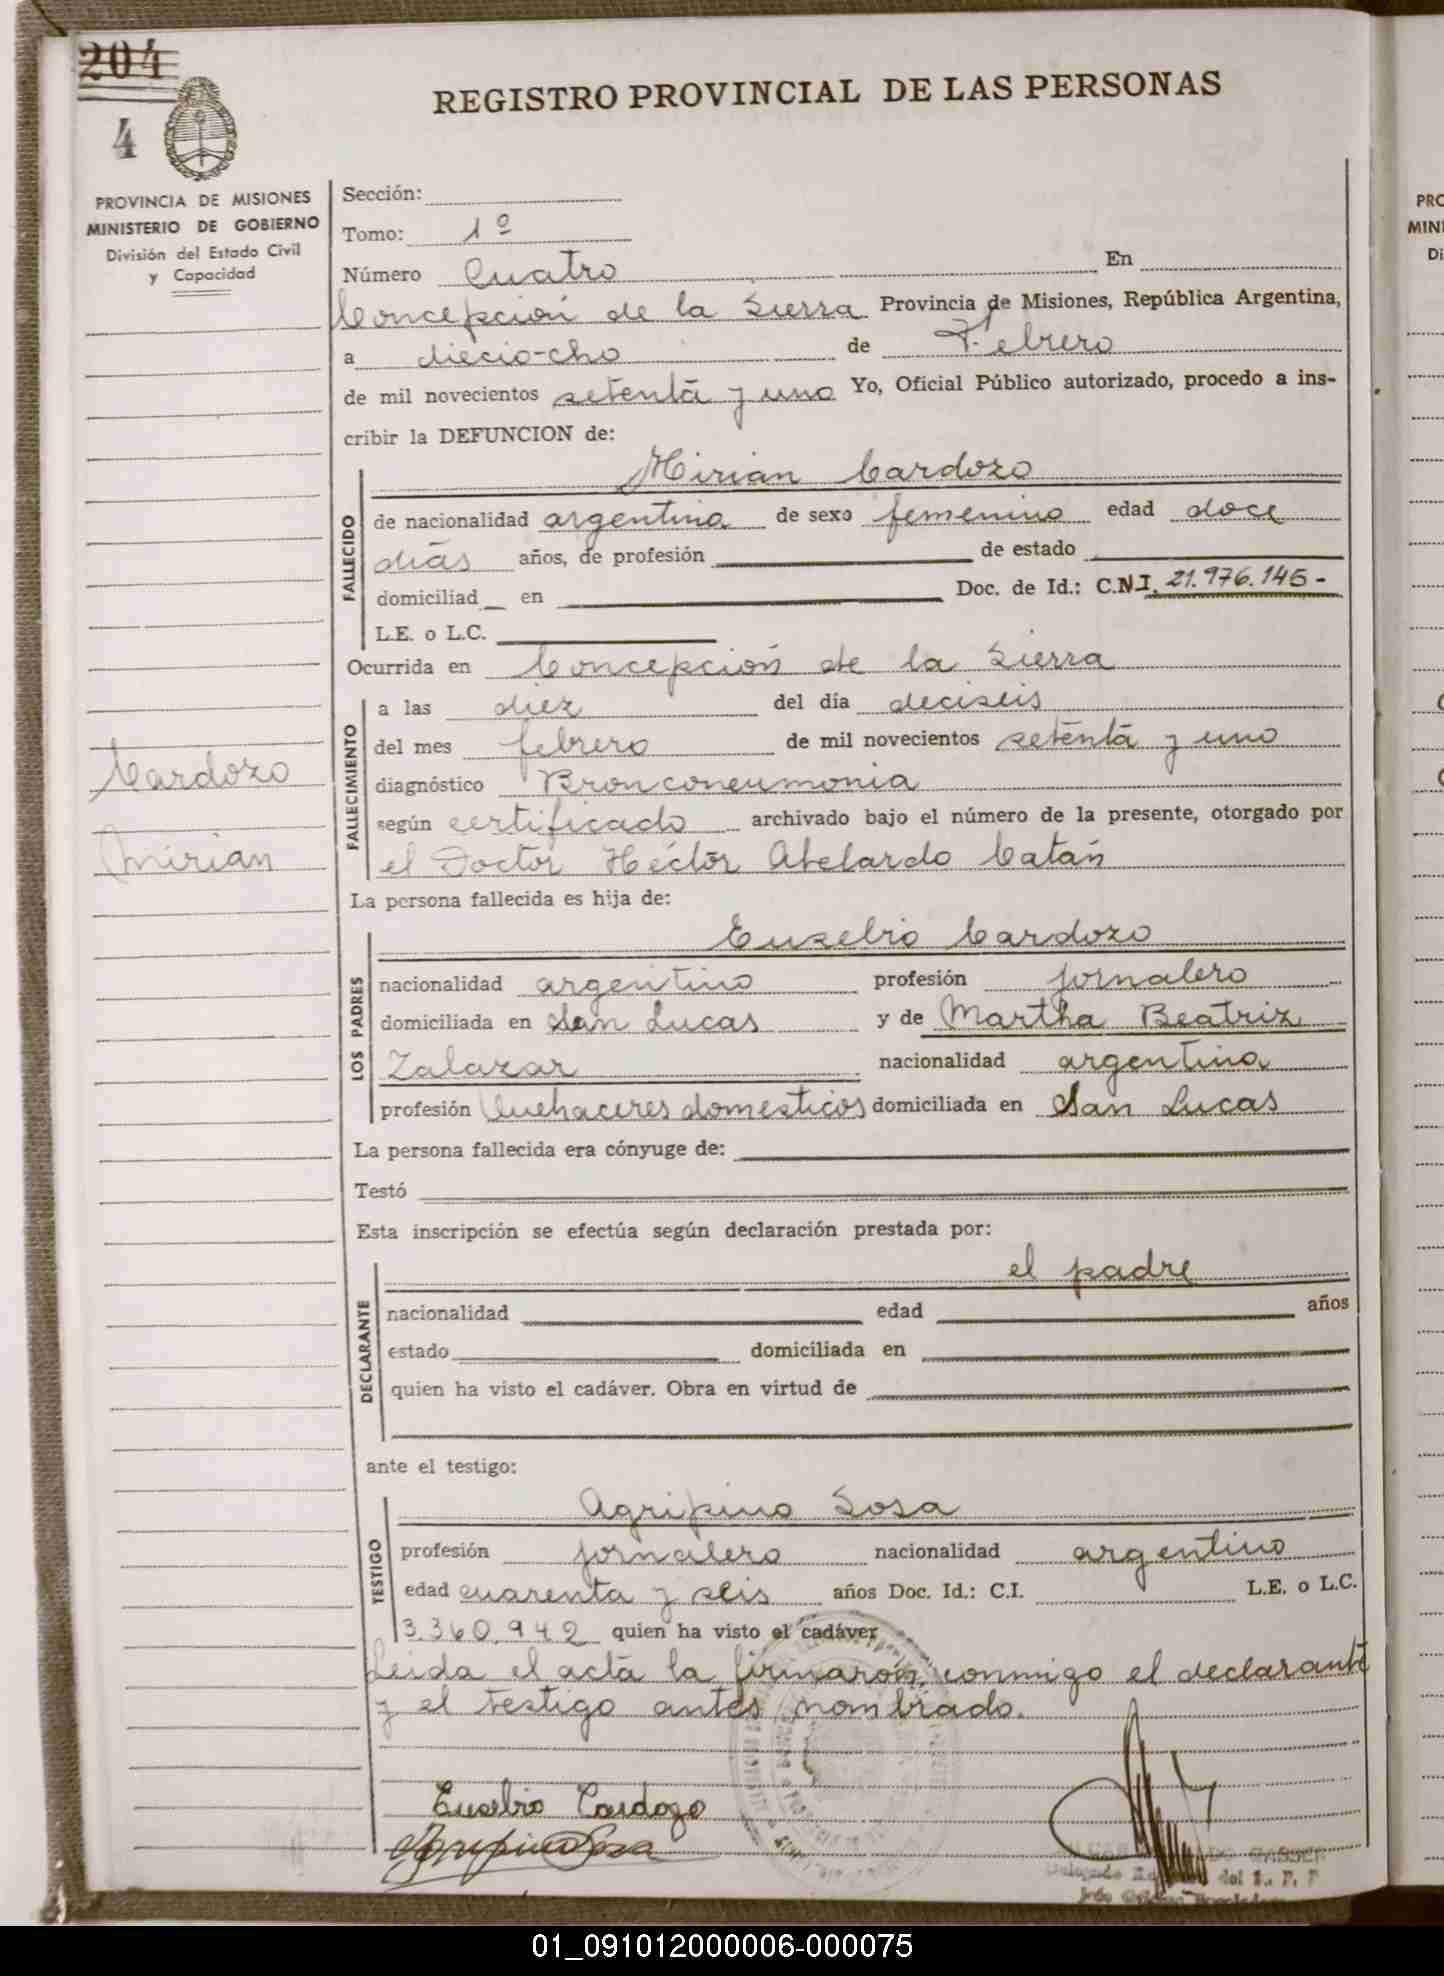 204
4
REGISTRO PROVINCIAL DE LAS PERSONAS
PROVINCIA DE MISIONES
MINISTERIO DE GOBIERNO
División del Estado Civil
y Capacidad
Sección:
Tomo: 1º
Número Cuatro En
Concepción de la Sierra Provincia de Misiones, República Argentina,
a diecio-cho de Febrero
de mil novecientos setenta y uno Yo, Oficial Público autorizado, procedo a ins-
cribir la DEFUNCION de:
Mirian Cardozo
FALLECIDO
de nacionalidad argentina de sexo femenino edad doce
días años, de profesión de estado
domiciliad en Doc. de Id.: C.N.I. 21.976.145-
L.E. o L.C.
Ocurrida en Concepción de la Sierra
FALLECIMIENTO
a las diez del día deciseis
del mes febrero de mil novecientos setenta y uno
diagnóstico Bronconeumonia
según certificado archivado bajo el número de la presente, otorgado por
el Doctor Héctor Abelardo Catán
Cardozo
Mirian
La persona fallecida es hija de:
Eusebio Cardozo
LOS PADRES
nacionalidad argentino profesión jornalero
domiciliada en San Lucas y de Martha Beatriz
Zalazar nacionalidad argentina
profesión Quehaceres domesticos domiciliada en San Lucas
La persona fallecida era cónyuge de:
Testó
Esta inscripción se efectúa según declaración prestada por:
el padre
DECLARANTE
nacionalidad edad años
estado domiciliada en
quien ha visto el cadáver. Obra en virtud de
ante el testigo:
Agripino Sosa
TESTIGO
profesión jornalero nacionalidad argentino
edad cuarenta y seis años Doc. Id.: C.I. L.E. o L.C.
3.360.942 quien ha visto el cadáver
Leida el acta la firmaron, conmigo el declarante
y el testigo antes nombrado.
Eusebio Cardozo
Agripino Sosa
PRO
MINI
Di
01_091012000006-000075